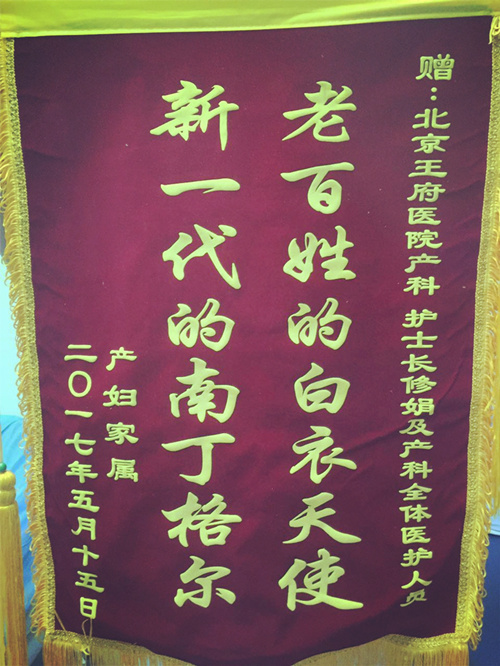 赠：北京王府医院产科 护士长修娟及产科全体医护人员
老百姓的白衣天使
新一代的南丁格尔
产妇家属
二〇一七年五月十五日